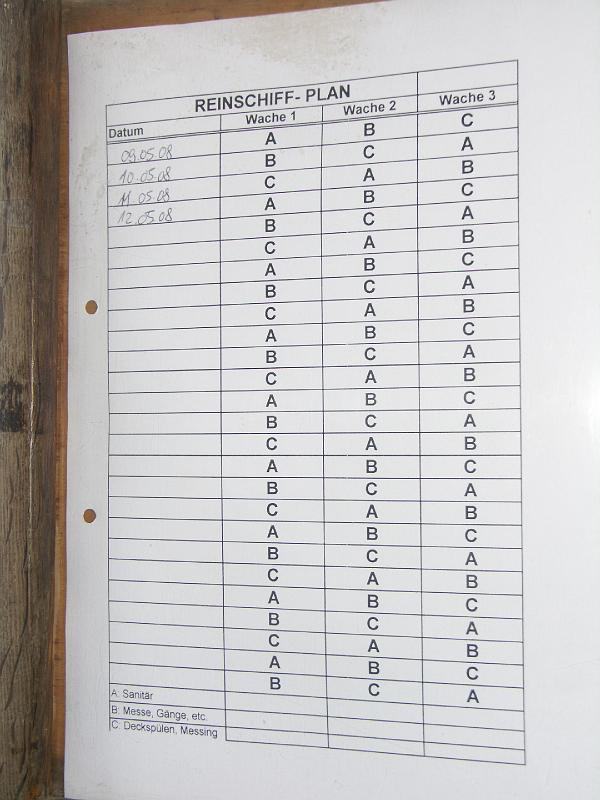 REINSCHIFF- PLAN
Datum Wache 1 Wache 2 Wache 3
09.05.08 A B C
10.05.08 B C A
11.05.08 C A B
12.05.08 A B C
B C A
C A B
A B C
B C A
C A B
A B C
B C A
C A B
A B C
B C A
C A B
A B C
B C A
C A B
A B C
B C A
C A B
A B C
B C A
C A B
A B C
B C A
A: Sanitär
B: Messe, Gänge, etc.
C: Deckspülen, Messing